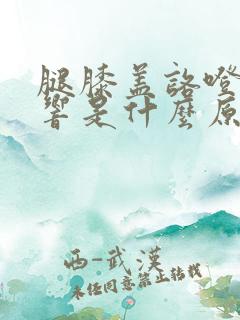 腿膝盖咯噔
響是什麽原
西-武漢
未经同意禁止转载